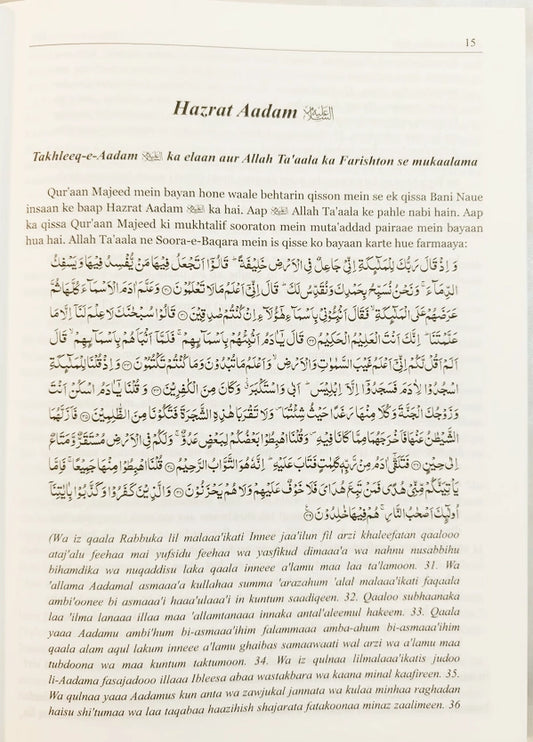 15
Hazrat Aadam عليه السلام
Takhleeq-e-Aadam عليه السلام ka elaan aur Allah Ta'aala ka Farishton se mukaalama
Qur'aan Majeed mein bayan hone waale behtarin qisson mein se ek qissa Bani Naue
insaan ke baap Hazrat Aadam عليه السلام ka hai. Aap عليه السلام Allah Ta'aala ke pahle nabi hain. Aap
ka qissa Qur'aan Majeed ki mukhtalif sooraton mein muta'addad pairaae mein bayaan
hua hai. Allah Ta'aala ne Soora-e-Baqara mein is qisse ko bayaan karte hue farmaaya:
وَ اِذْ قَالَ رَبُّكَ لِلْمَلٰٓئِكَةِ اِنِّیْ جَاعِلٌ فِی الْاَرْضِ خَلِیْفَةً ؕ قَالُوْۤا اَتَجْعَلُ فِیْهَا مَنْ یُّفْسِدُ فِیْهَا وَیَسْفِكُ
الدِّمَآءَ ۚ وَنَحْنُ نُسَبِّحُ بِحَمْدِكَ وَنُقَدِّسُ لَكَ ؕ قَالَ اِنِّیْۤ اَعْلَمُ مَا لَا تَعْلَمُوْنَ ۞ وَعَلَّمَ اٰدَمَ الْاَسْمَآءَ كُلَّهَا ثُمَّ
عَرَضَهُمْ عَلَی الْمَلٰٓئِكَةِ ۙ فَقَالَ اَنْۢبِـُٔوْنِیْ بِاَسْمَآءِ هٰۤؤُلَآءِ اِنْ كُنْتُمْ صٰدِقِیْنَ ۞ قَالُوْا سُبْحٰنَكَ لَا عِلْمَ لَنَاۤ اِلَّا مَا
عَلَّمْتَنَا ؕ اِنَّكَ اَنْتَ الْعَلِیْمُ الْحَكِیْمُ ۞ قَالَ یٰۤاٰدَمُ اَنْۢبِئْهُمْ بِاَسْمَآىِٕهِمْ ۚ فَلَمَّاۤ اَنْۢبَاَهُمْ بِاَسْمَآىِٕهِمْ ۙ قَالَ
اَلَمْ اَقُلْ لَّكُمْ اِنِّیْۤ اَعْلَمُ غَیْبَ السَّمٰوٰتِ وَالْاَرْضِ ۙ وَاَعْلَمُ مَا تُبْدُوْنَ وَمَا كُنْتُمْ تَكْتُمُوْنَ ۞ وَاِذْ قُلْنَا لِلْمَلٰٓئِكَةِ
اسْجُدُوْا لِاٰدَمَ فَسَجَدُوْۤا اِلَّاۤ اِبْلِیْسَ ؕ اَبٰی وَاسْتَكْبَرَ ۗ وَكَانَ مِنَ الْكٰفِرِیْنَ ۞ وَ قُلْنَا یٰۤاٰدَمُ اسْكُنْ اَنْتَ
وَزَوْجُكَ الْجَنَّةَ وَكُلَا مِنْهَا رَغَدًا حَیْثُ شِئْتُمَا ۪ وَلَا تَقْرَبَا هٰذِهِ الشَّجَرَةَ فَتَكُوْنَا مِنَ الظّٰلِمِیْنَ ۞ فَاَزَلَّهُمَا
الشَّیْطٰنُ عَنْهَا فَاَخْرَجَهُمَا مِمَّا كَانَا فِیْهِ ۪ وَقُلْنَا اهْبِطُوْا بَعْضُكُمْ لِبَعْضٍ عَدُوٌّ ۚ وَلَكُمْ فِی الْاَرْضِ مُسْتَقَرٌّ وَّمَتَاعٌ
اِلٰی حِیْنٍ ۞ فَتَلَقّٰۤی اٰدَمُ مِنْ رَّبِّهٖ كَلِمٰتٍ فَتَابَ عَلَیْهِ ؕ اِنَّهٗ هُوَ التَّوَّابُ الرَّحِیْمُ ۞ قُلْنَا اهْبِطُوْا مِنْهَا جَمِیْعًا ۚ فَاِمَّا
یَاْتِیَنَّكُمْ مِّنِّیْ هُدًی فَمَنْ تَبِعَ هُدَایَ فَلَا خَوْفٌ عَلَیْهِمْ وَلَا هُمْ یَحْزَنُوْنَ ۞ وَالَّذِیْنَ كَفَرُوْا وَكَذَّبُوْا بِاٰیٰتِنَاۤ
اُولٰٓئِكَ اَصْحٰبُ النَّارِ ۚ هُمْ فِیْهَا خٰلِدُوْنَ ۞
(Wa iz qaala Rabbuka lil malaaa'ikati Innee jaa'ilun fil arzi khaleefatan qaalooo
ataj'alu feehaa mai yufsidu feehaa wa yasfikud dimaaa'a wa nahnu nusabbihu
bihamdika wa nuqaddisu laka qaala inneee a'lamu maa laa ta'lamoon. 31. Wa
'allama Aadamal asmaaa'a kullahaa summa 'arazahum 'alal malaaa'ikati faqaala
ambi'oonee bi asmaaa'i haaa'ulaaa'i in kuntum saadiqeen. 32. Qaaloo subhaanaka
laa 'ilma lanaaa illaa maa 'allamtanaaa innaka antal'aleemul hakeem. 33. Qaala
yaaa Aadamu ambi'hum bi-asmaaa'ihim falammaaa amba-ahum bi-asmaaa'ihim
qaala alam aqul lakum inneee a'lamu ghaibas samaawaati wal arzi wa a'lamu maa
tubdoona wa maa kuntum taktumoon. 34. Wa iz qulnaa lilmalaaa'ikatis judoo
li-Aadama fasajadooo illaaa Ibleesa abaa wastakbara wa kaana minal kaafireen. 35.
Wa qulnaa yaaa Aadamus kun anta wa zawjukal jannata wa kulaa minhaa raghadan
haisu shi'tumaa wa laa taqabaa haazihish shajarata fatakoonaa minaz zaalimeen. 36